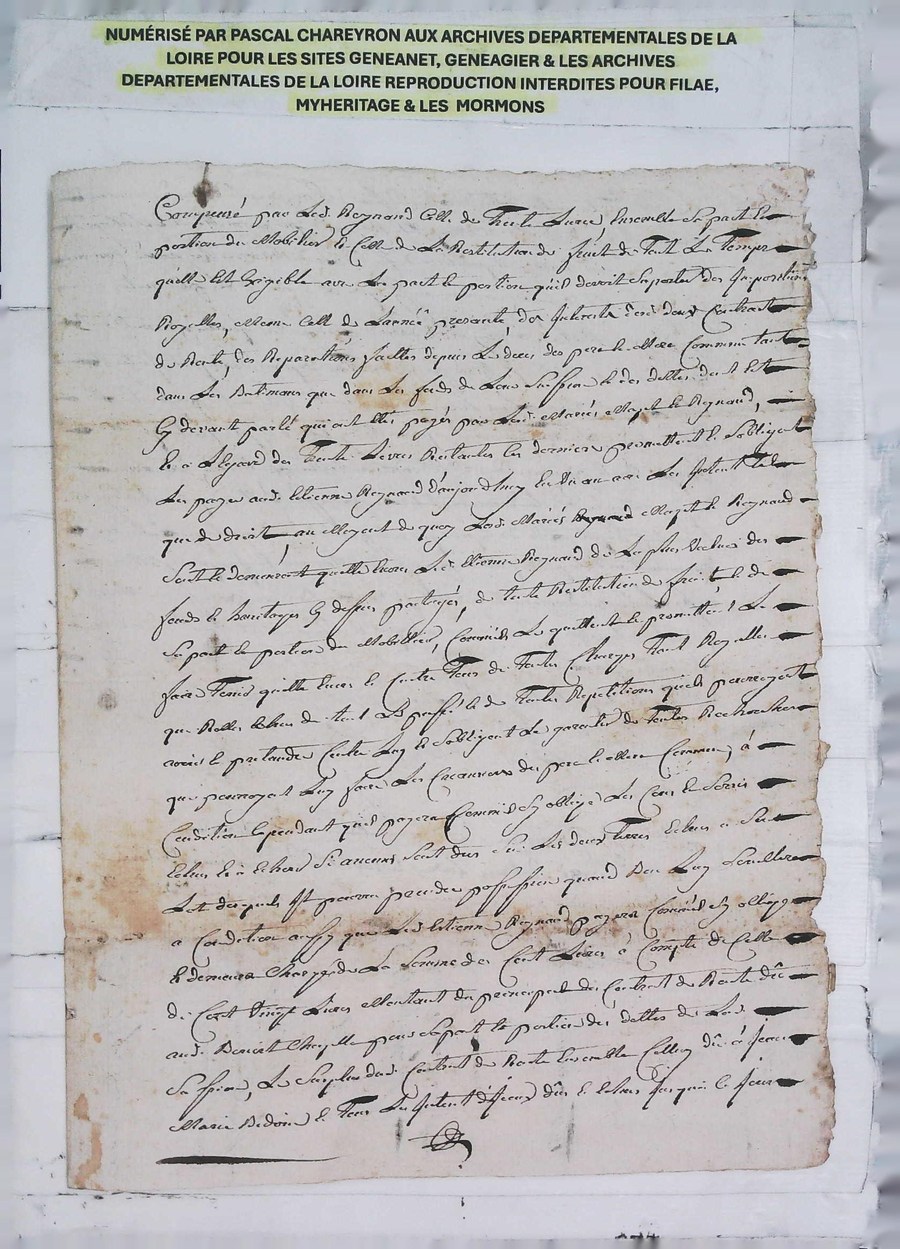 NUMÉRISÉ PAR PASCAL CHAREYRON AUX ARCHIVES DEPARTEMENTALES DE LA
LOIRE POUR LES SITES GENEANET, GENEAGIER & LES ARCHIVES
DEPARTEMENTALES DE LA LOIRE REPRODUCTION INTERDITES POUR FILAE,
MYHERITAGE & LES MORMONS
Compensé par Led. Reynaud Celle de Trente Livres, Ensemble Sa part &
portion du Mobilier & Celle de La Restitution de fruit de Tout Le Temps
qu'elle Est Exigible avec La part & portion qu'il devoit Suporter des Impositions
Royalles, même Celle de L'année presante, des Interets des deux Contracts
de Rente, des Reparations faittes depuis Le deces des pere & Mere Communs tant
dans Les Batimens que dans Les fonds de Leur & des dettes dont Est
Cy devant parlé qui ont Ettés payés par Lesd. Mariés & Reynaud,
Et a L'Egard des Trente Livres Restantes Ces derniers promettent & S'obligent
Les payer aud. Etienne Reynaud d'aujourd'huy En Un an avec Les Interets tels
que de droit, au Moyent de quoy Lesd. Mariés & Reynaud
Sont & demeurent quittes Envers Led. Etienne Reynaud de La plus Value des
fonds & heritages Cy dessus partagés, de toute Restitution de fruits & de
Sa part & portion du Mobillier, Comm'il Les quittent & promettent Le
faire Tenir quitte Envers & Contre Tous de Toutes Charges Tant Royalles
que Rolles Echus de tout Le passé & de Toutes Repetitions qu'ils pourroyent
avoir & pretandre Contre Luy & S'obligent Le garantir de Toutes Recherches
que pourroyent Luy faire Les Creanciers des pere & Mere Communs, à
Condition Cependant qu'il payera Comm'il S'y oblige Les Cens & Servis
Echus & à Echoir Si aucuns Sont dus Sur Les deux Terres Echues a Son
Lot desquels Il pourra prendre possession quand Bon Luy Semblera
a Condition aussy que Led. Etienne Reynaud payera Comm'il S'y oblige
& demeure Chargé de La Somme de Cent Livres à Compte de Celle
de Cent Vingt Livres Montant du principal du Contrat de Rente dû
aud. Benoit Chapelle pour Sa part & portion des dettes de Lad.
Le Surplus dud. Contrat de Rente Ensemble Celluy dû à Jean
Marie & Tous Les Interets d'Iceux dûs & Echus Jusqu'à Ce Jour